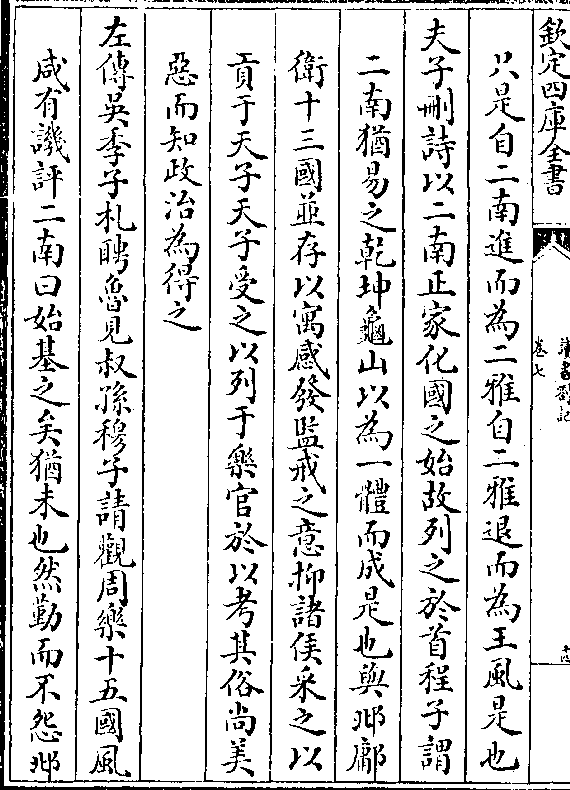 欽定四庫全書
卷七
只是自二南進而為二雅自二雅退而為王風是也
夫子刪詩以二南正家化國之始故列之於首程子謂
二南猶易之乾坤龜山以為一體而成是也與邶鄘
衛十三國並存以寓感發監戒之意抑諸侯采之以
貢于天子天子受之以列于樂官於以考其俗尚美
惡而知政治為得之
左傳吳季子札聘魯見叔孫穆子請觀周樂十五國風
咸有譏評二南曰始基之矣猶未也然勤而不怨邶